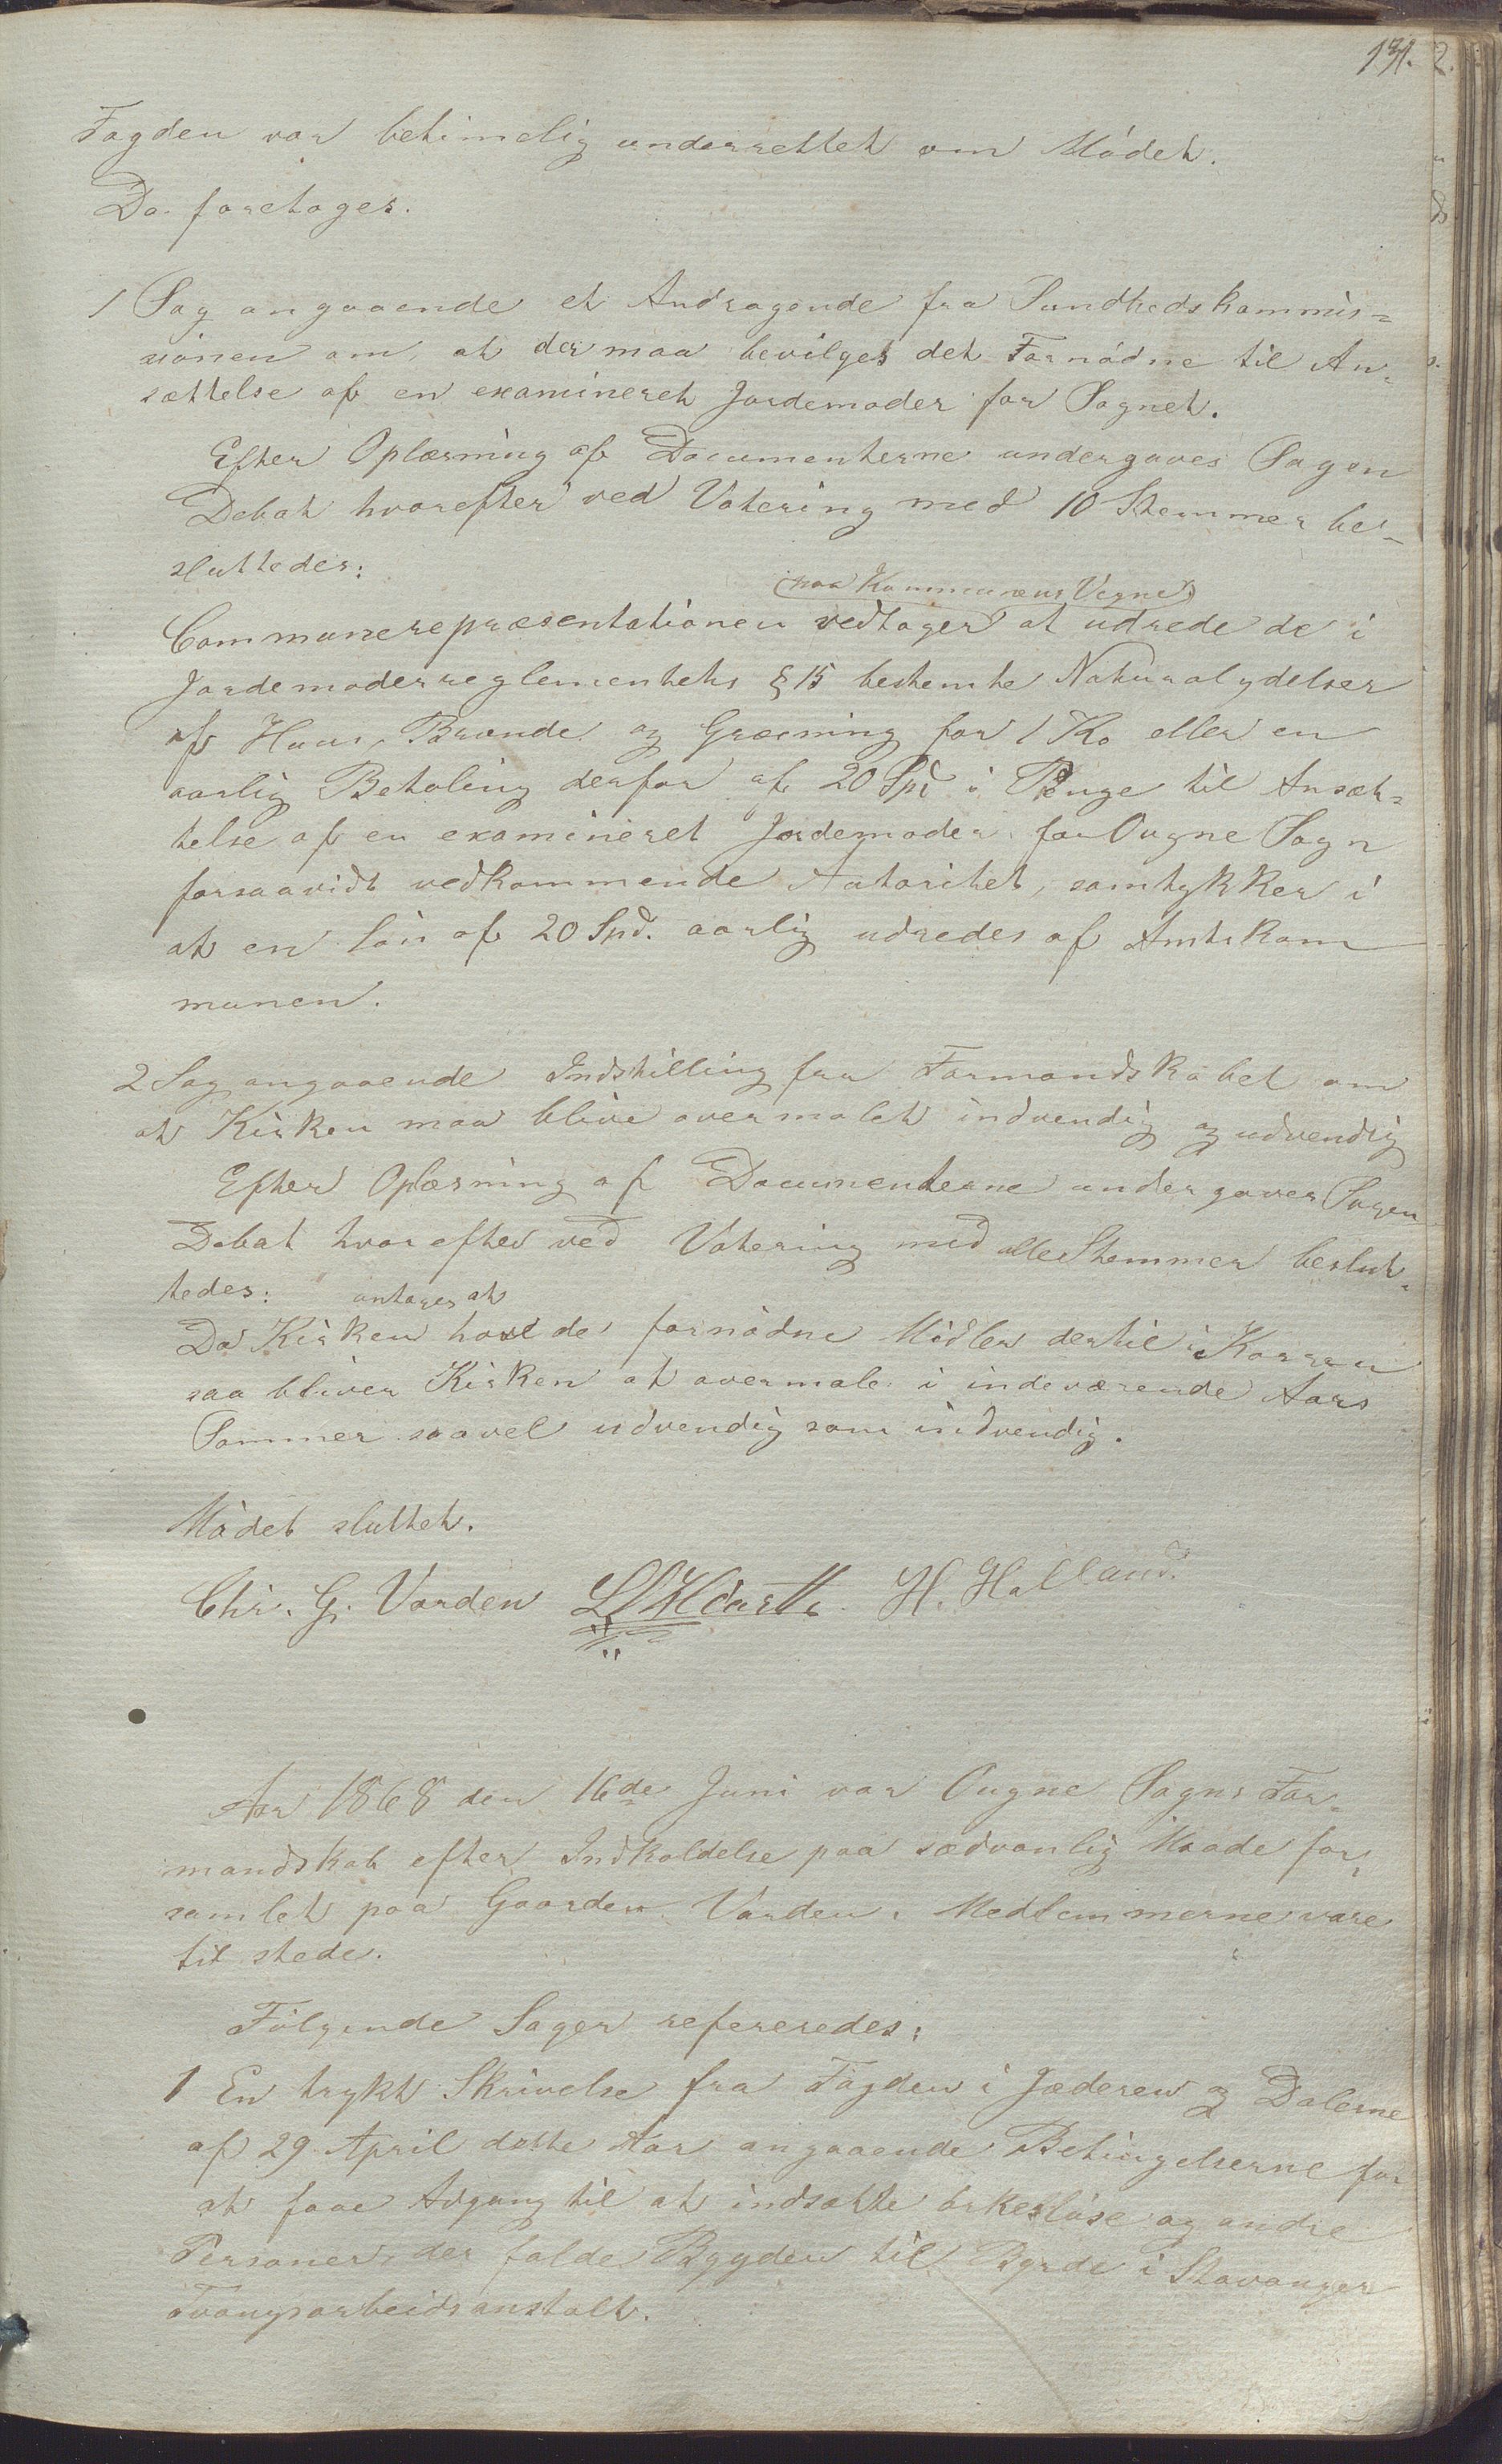 131.
Fogden var betimelig underrettet om Mödet.
Da foretoges.
1 Sag angaaende et Andragende fra Sundhedskommis=
sionen om, at der maa bevilges det Fornödne til An=
sættelse af en examineret Jordemoder for Sognet.
Efter Oplæsning af Documenterne undergaves Sagen
Debat hvorefter ved Votering med 10 Stemmer be-
sluttedes:
(paa Kommunens Vegne)
Communerepræsentationen vedtager at udrede de i
Jordemoderreglementets § 15 bestemte Naturalydelser
af Huus, Brænde og Græsning for 1 Ko eller en
aarlig Betaling derfor af 20 Spd i Penge til Ansæt=
telse af en examineret Jordemoder for Ougne Sogn
forsaavidt vedkommende Autoritet, samtykker i
at en lön af 20 Spd. aarlig udredes af Amtskom
munen.
2 Sag angaaende Indstilling fra Formandskabet om
at Kirken maa blive overmalet indvendig og udvendig
Efter Oplæsning af Documenterne undergaves Sagen
Debat hvorefter ved Votering med alle Stemmer beslut=
tedes: antages at
Da Kirken have de fornödne Midler dertil i Kassen
saa bliver Kirken at overmale i indeværende Aars
Sommer saavel udvendig som indvendig.
Mödet sluttet.
Chr. G. Varden H. Halland.
Aar 1868 den 16de Juni var Ougne Sogns For=
mandskab efter Indkaldelse paa sædvanlig Maade for=
samlet paa Gaarden Varden. Medlemmerne vare
til stede.
Fölgende Sager refereredes:
1 En trykt Skrivelse fra Fogden i Jæderen og Dalerne
af 29 April dette Aar angaaende Betingelserne for
at faae Adgang til at indsætte örkeslöse og andre
Personer, der falde Bygden til Byrde i Stavanger
Tvangsarbeidsanstalt.